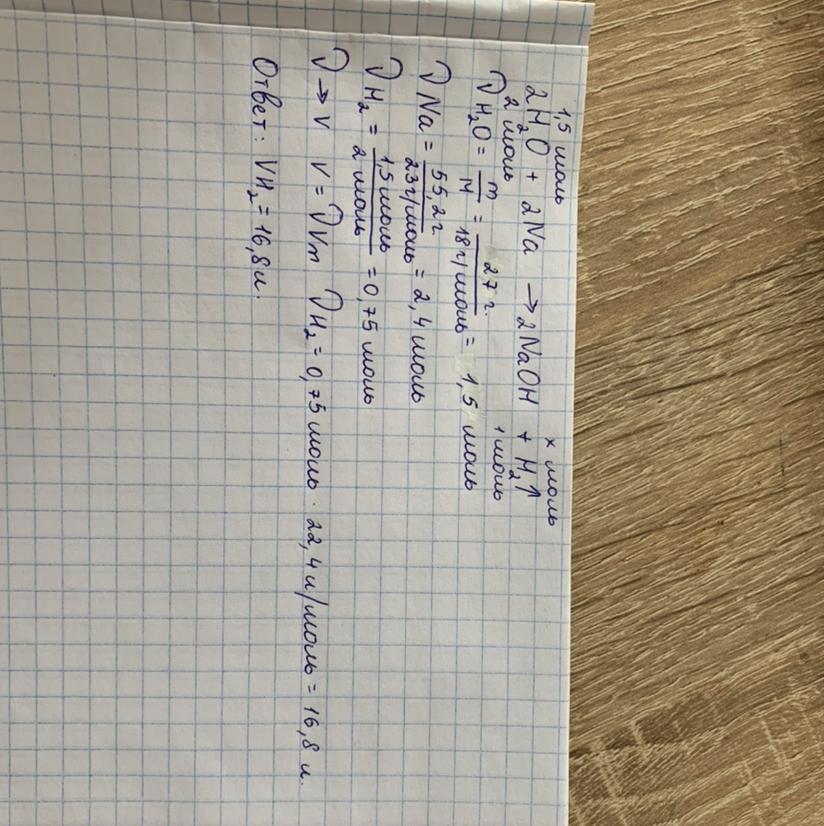 1,5 моль x моль
2H₂O + 2Na → 2NaOH + H₂↑
2 моль 1 моль
νH₂O = m/M = 27 г./18 г/моль = 1,5 моль
νNa = 55,2 г/23 г/моль = 2,4 моль
νH₂ = 1,5 моль/2 моль = 0,75 моль
ν → V V = νVm νH₂ = 0,75 моль · 22,4 л/моль = 16,8 л.
Ответ: VH₂ = 16,8 л.